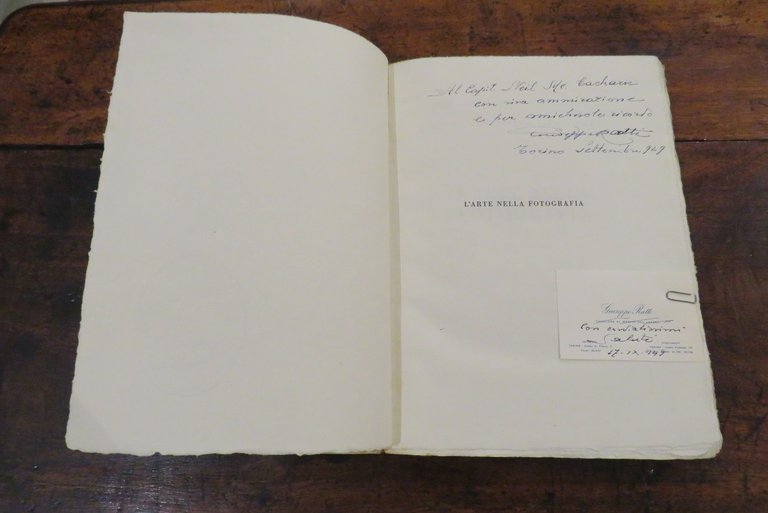 Al Capit. Neil Mc. Eacharn
con viva ammirazione
e per amichevole ricordo
Giuseppe Ratti
Torino Settembre 949
L'ARTE NELLA FOTOGRAFIA
Giuseppe Ratti
con cordialissimi
saluti
17.IX.949